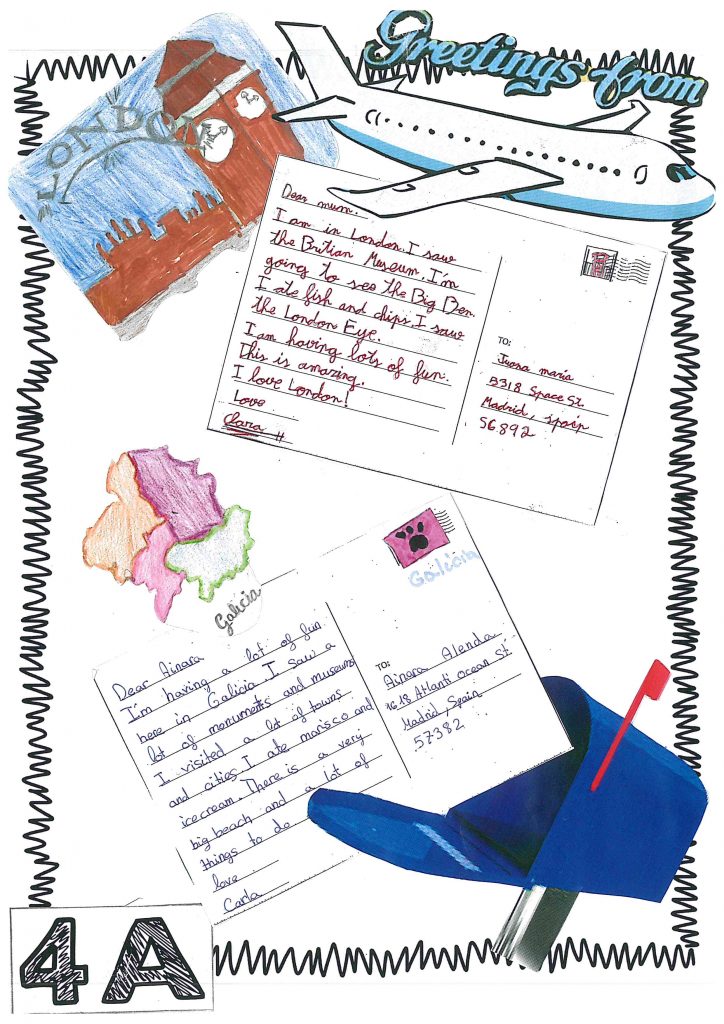 Greetings from
LONDON
Dear mum.
I am in London. I saw
the Britian Museum. I'm
going to see the Big Ben.
I ate fish and chips. I saw
the London Eye.
I am having lots of fun.
This is amazing.
I love London!
Love
Clara
TO:
maria
5318 Space St.
Madrid, spain
56892
Galicia
Galicia
Dear Ainara
I'm having a lot of fun
here in Galicia. I saw a
lot of monuments and museums
I visited a lot of towns
and cities. I ate marisco and
icecream. There is a very
big beach and a lot of
things to do
love
Carla
TO:
Ainara Alenda
18 Atlanti Ocean St.
Madrid, Spain
57382
4A